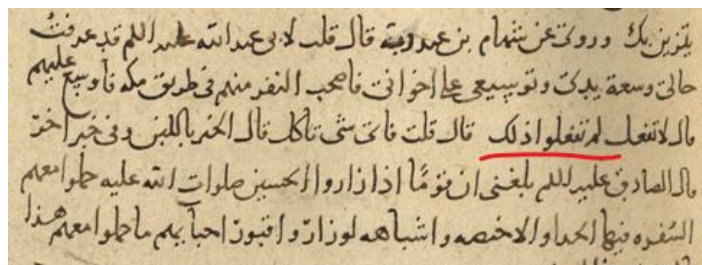 يتزين بك وروى عن شهاب بن عبد ربه قال قلت لابى عبد الله عليه اللم قد عرفت
حالى وسعة يدى وتوسيعى على اخوانى فاصحب النفر منهم فى طريق مكه فاوسع عليهم
قال لا تفعل لم تفعلوا ذلك قال قلت فاى شى تاكل قال الخبز باللبن وفى خبر اخر
قال الصادق عليه اللم بلغنى ان قومًا اذا زاروا الحسين صلوات الله عليه حملوا معهم
السفره فيها الجداو الاخبصه واشباهه لو زاروا قبور احبابهم ما حملوا معهم هذا